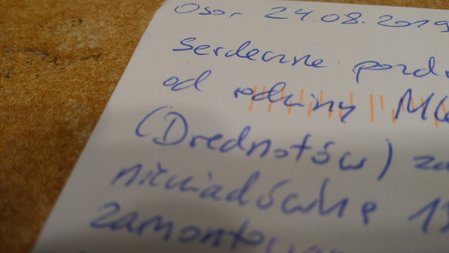 Osor 24.08.2019
Serdeczne pozd
od rodziny M
(Drednotów) za
niewiadówkę 1
zamontowan